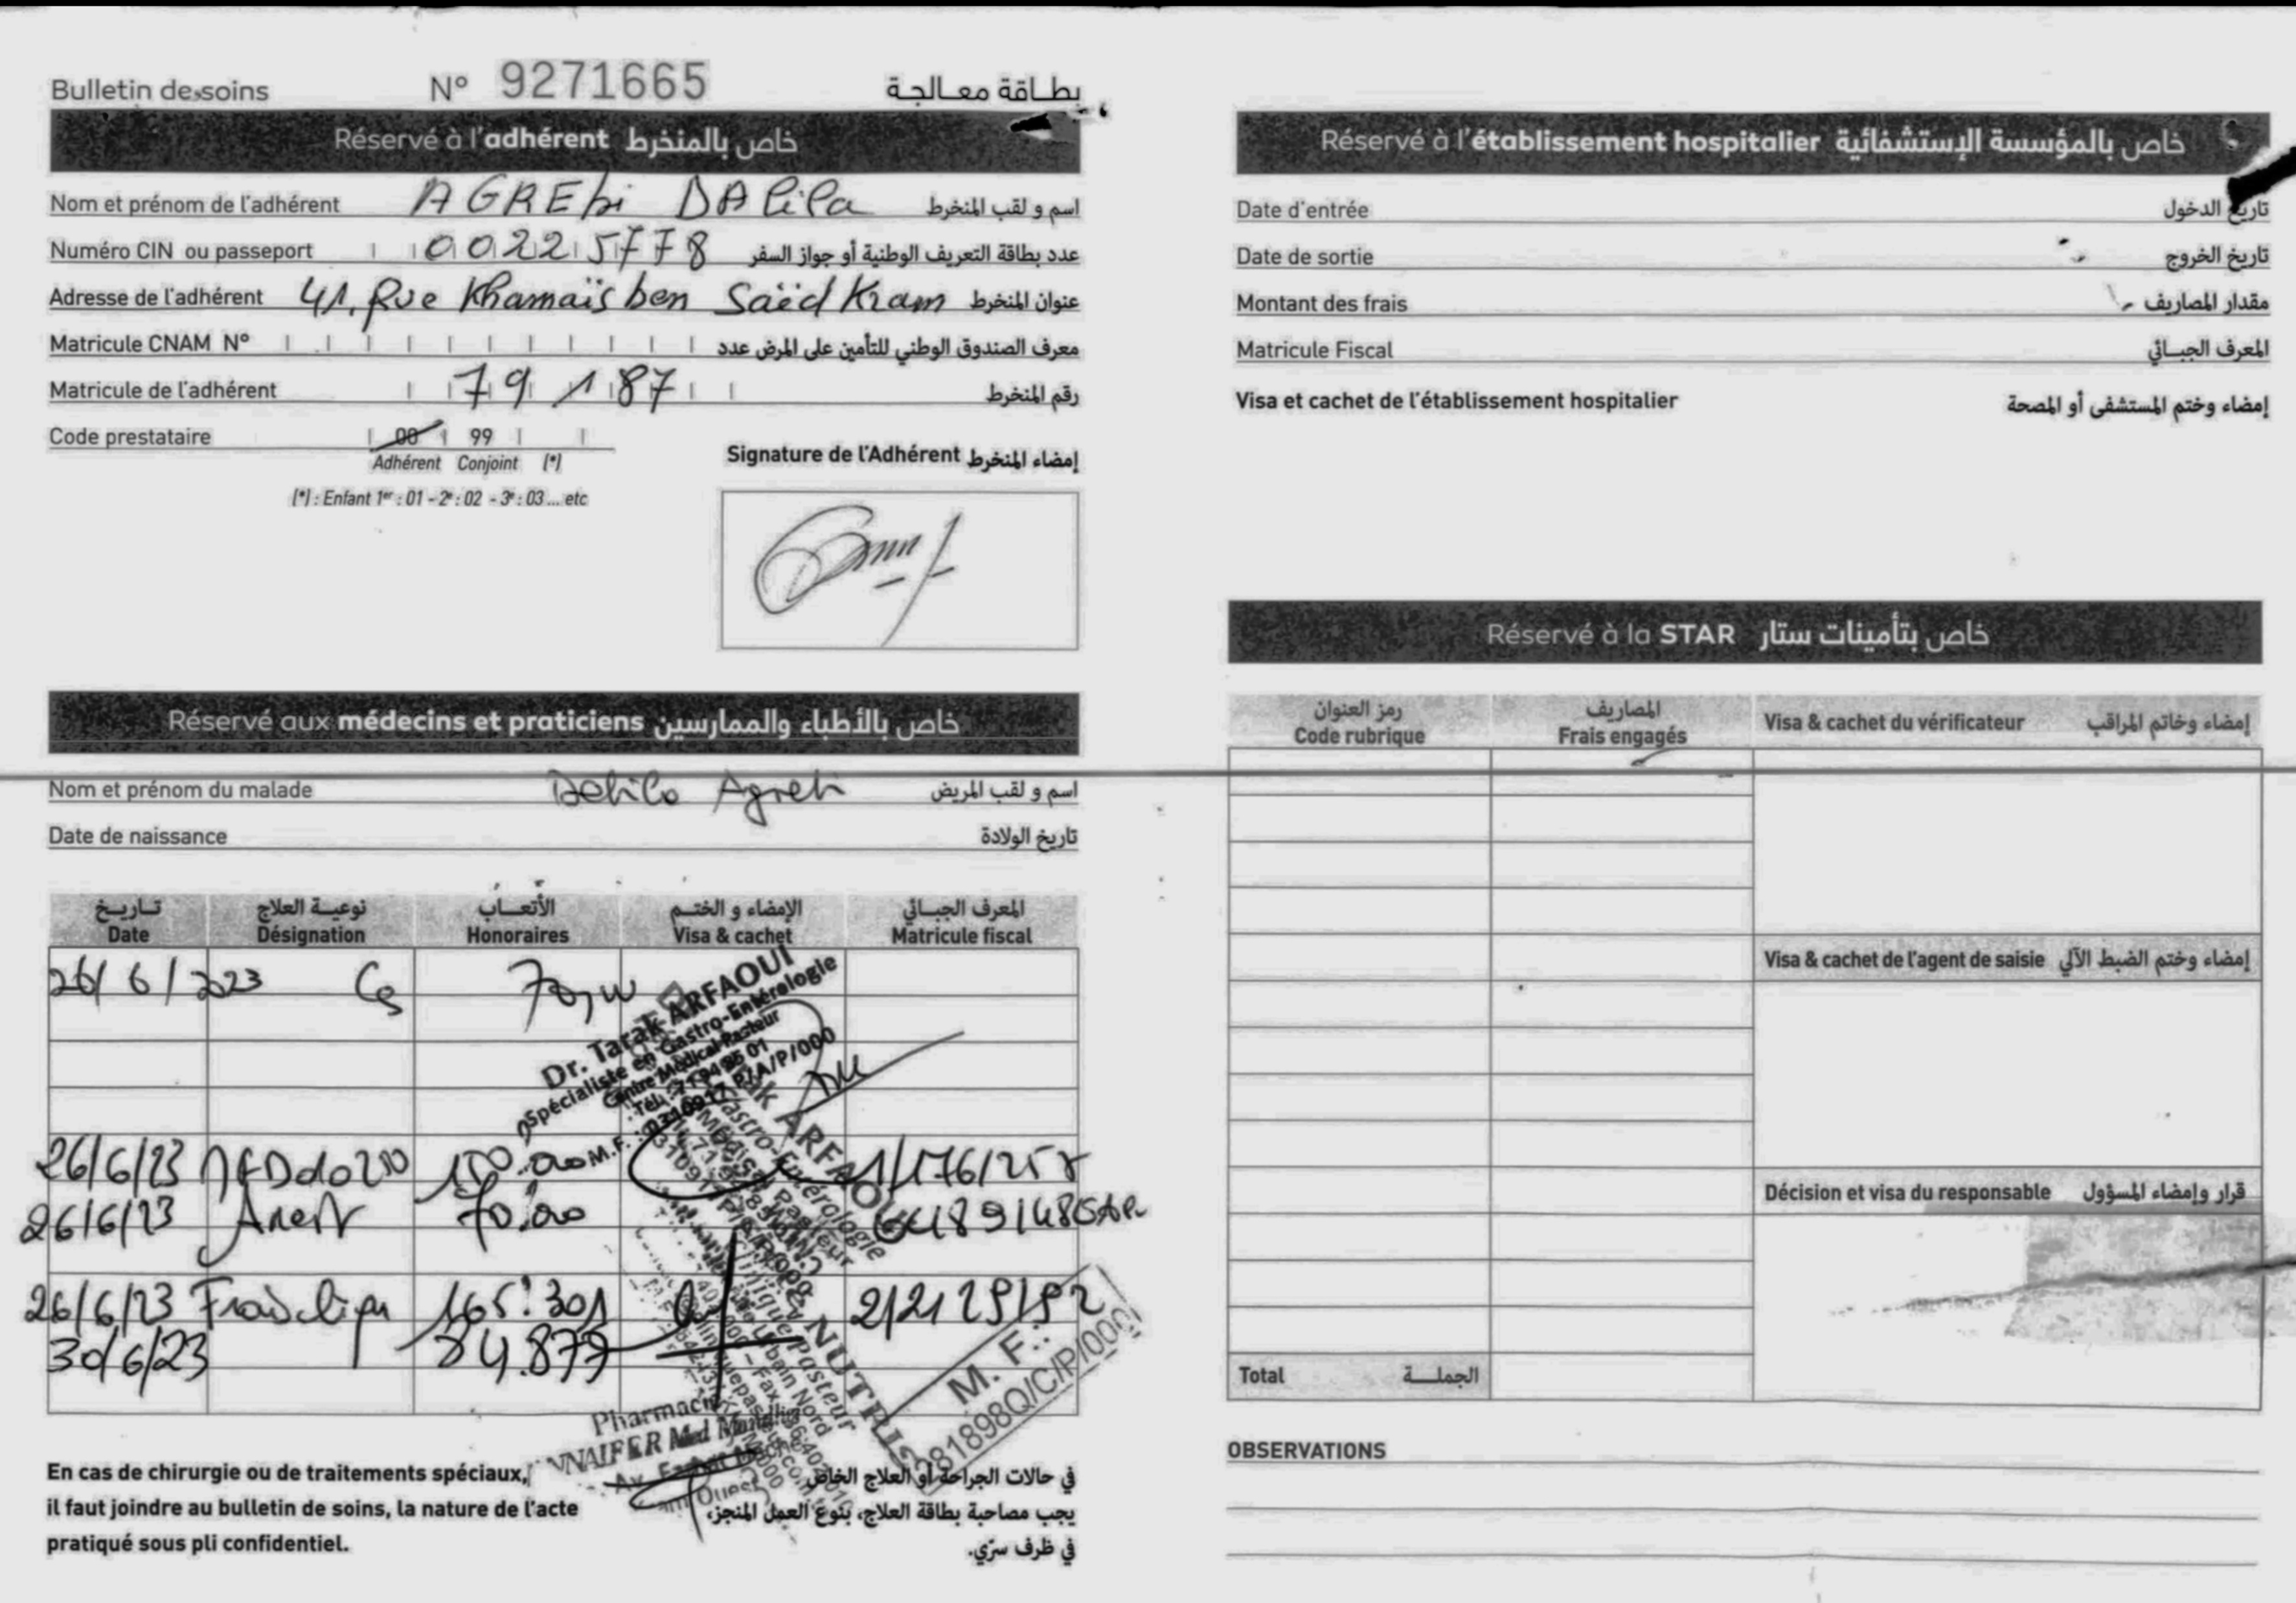 Bulletin de soins N° 9271665 بطاقة معالجة
Réservé à l'adhérent خاص بالمنخرط
Nom et prénom de l'adhérent AGREbi DAlila اسم و لقب المنخرط
Numéro CIN ou passeport 00225778 عدد بطاقة التعريف الوطنية أو جواز السفر
Adresse de l'adhérent 41, Rue Khamaïs ben Saëd Kram عنوان المنخرط
Matricule CNAM N° معرف الصندوق الوطني للتأمين على المرض عدد
Matricule de l'adhérent 79187 رقم المنخرط
Code prestataire 00 99
Adhérent Conjoint (*)
(*) : Enfant 1er : 01 - 2e : 02 - 3e : 03 ... etc
Signature de l'Adhérent إمضاء المنخرط
Réservé aux médecins et praticiens خاص بالأطباء والممارسين
Nom et prénom du malade Agreb اسم و لقب المريض
Date de naissance تاريخ الولادة
تاريخ نوعية العلاج الأتعاب الإمضاء و الختم المعرف الجبائي
Date Désignation Honoraires Visa & cachet Matricule fiscal
26/6/2023 Cs
Dr. Tarak ARFAOUI
Spécialiste en Gastro-Entérologie
Centre Médical Pasteur
M.F. : 0310917 P/A/P/000
26/6/23
26/6/23 70.000
26/6/23 Frais 165.301
30/6/23 84.877
Pharmacie
NNAIFER Med
M. F.:
881898Q/C/P/000
NUTRIS
En cas de chirurgie ou de traitements spéciaux,
il faut joindre au bulletin de soins, la nature de l'acte
pratiqué sous pli confidentiel.
في حالات الجراحة أو العلاج الخاص
يجب مصاحبة بطاقة العلاج، بنوع العمل المنجز،
في ظرف سرّي.
Réservé à l'établissement hospitalier خاص بالمؤسسة الإستشفائية
Date d'entrée تاريخ الدخول
Date de sortie تاريخ الخروج
Montant des frais مقدار المصاريف
Matricule Fiscal المعرف الجبائي
Visa et cachet de l'établissement hospitalier إمضاء وختم المستشفى أو المصحة
Réservé à la STAR خاص بتأمينات ستار
رمز العنوان المصاريف
Code rubrique Frais engagés Visa & cachet du vérificateur إمضاء وخاتم المراقب
Visa & cachet de l'agent de saisie إمضاء وختم الضبط الآلي
Décision et visa du responsable قرار وإمضاء المسؤول
Total الجملة
OBSERVATIONS